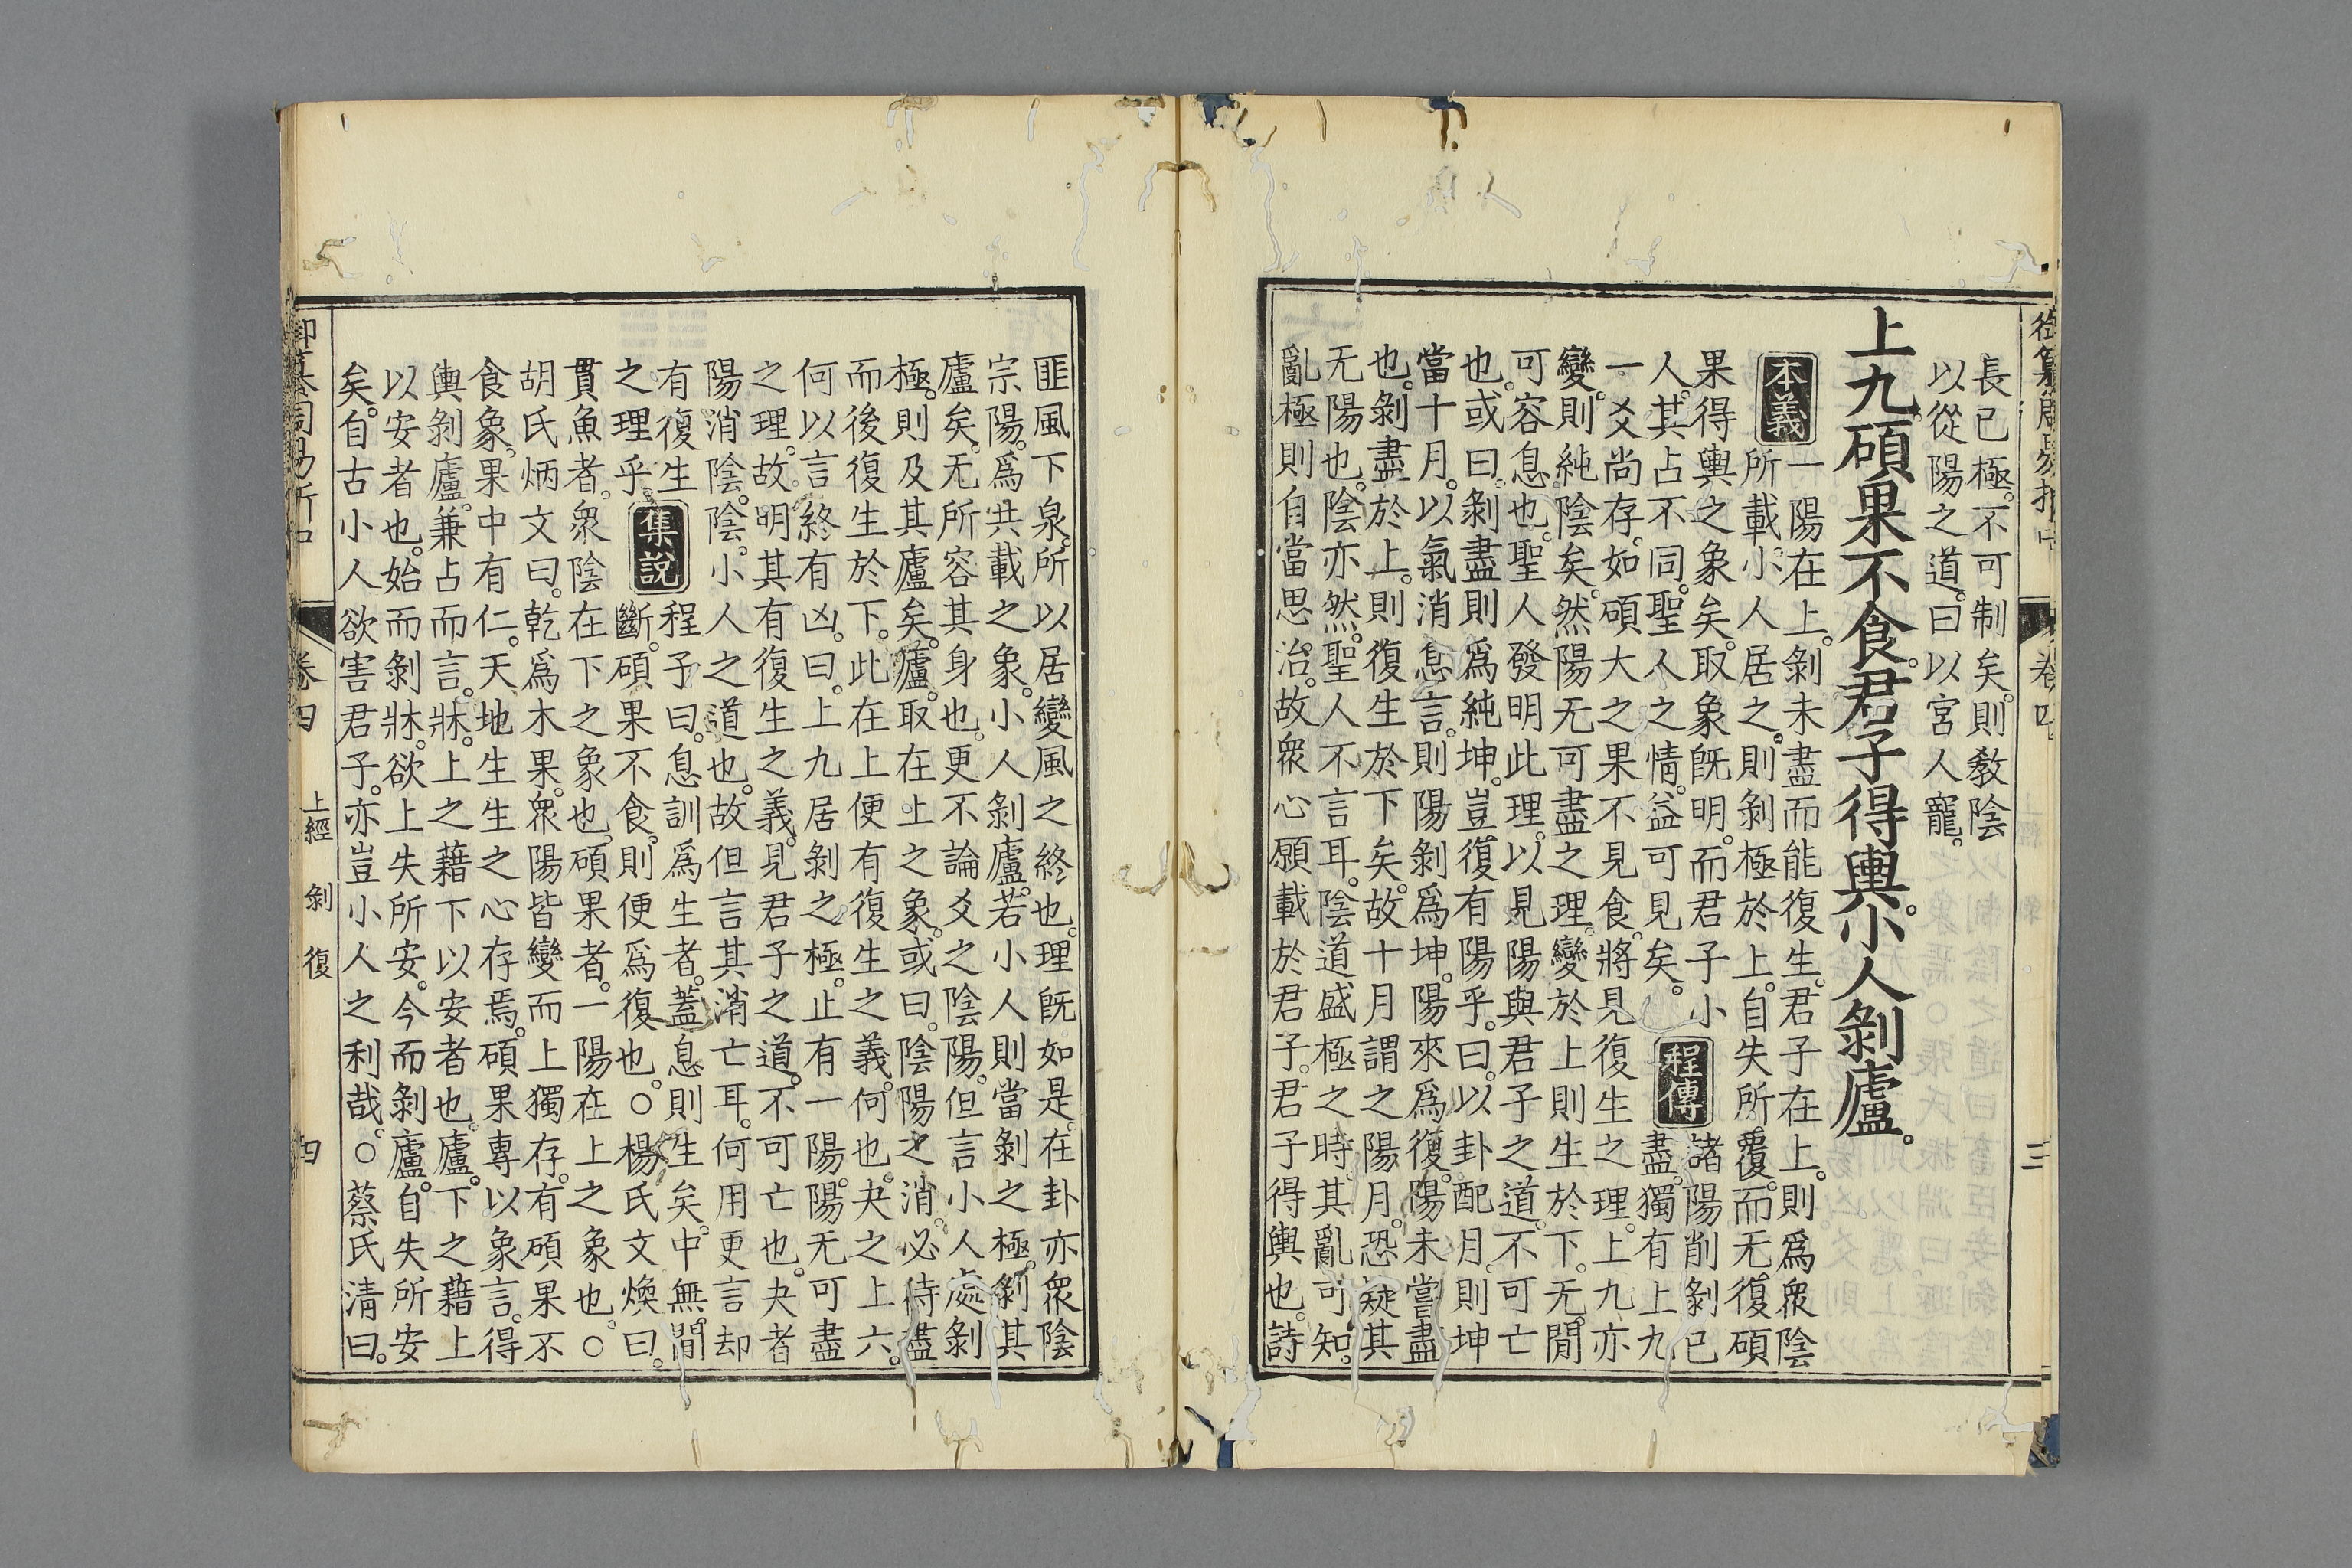 御纂周易折中 卷四 三
長已極。不可制矣。則教陰
以從陽之道。曰以宮人寵。
上九碩果不食。君子得輿。小人剝廬。
本義
一陽在上。剝未盡而能復生。君子在上。則爲衆陰
所載。小人居之。則剝極於上。自失所覆。而无復碩
果得輿之象矣。取象既明。而君子小
人。其占不同。聖人之情。益可見矣。
程傳
諸陽削剝已
盡。獨有上九
一爻尚存。如碩大之果不見食。將見復生之理。上九亦
變。則純陰矣。然陽无可盡之理。變於上則生於下。无閒
可容息也。聖人發明此理。以見陽與君子之道。不可亡
也。或曰。剝盡則爲純坤。豈復有陽乎。曰。以卦配月。則坤
當十月。以氣消息言。則陽剝爲坤。陽來爲復。陽未嘗盡
也。剝盡於上。則復生於下矣。故十月謂之陽月。恐疑其
无陽也。陰亦然。聖人不言耳。陰道盛極之時。其亂可知。
亂極則自當思治。故衆心願載於君子。君子得輿也。詩
匪風下泉。所以居變風之終也。理既如是。在卦亦衆陰
宗陽。爲共載之象。小人剝廬。若小人則當剝之極。剝其
廬矣。无所容其身也。更不論爻之陰陽。但言小人處剝
極。則及其廬矣。廬。取在上之象。或曰。陰陽之消。必待盡
而後復生於下。此在上便有復生之義。何也。夬之上六。
何以言終有凶。曰。上九居剝之極。止有一陽。陽无可盡
之理。故明其有復生之義。見君子之道。不可亡也。夬者
陽消陰。陰。小人之道也。故但言其消亡耳。何用更言却
有復生
之理乎
集說
程子曰。息訓爲生者。蓋息則生矣。中無閒
斷。碩果不食。則便爲復也。○楊氏文煥曰。
貫魚者。衆陰在下之象也。碩果者。一陽在上之象也。○
胡氏炳文曰。乾爲木果。衆陽皆變而上獨存。有碩果不
食象。果中有仁。天地生生之心存焉。碩果專以象言。得
輿剝廬。兼占而言。牀。上之藉下以安者也。廬。下之藉上
以安者也。始而剝牀。欲上失所安。今而剝廬。自失所安
矣。自古小人欲害君子。亦豈小人之利哉。○蔡氏清曰。
御纂周易折中 卷四 上經 剝 復 四